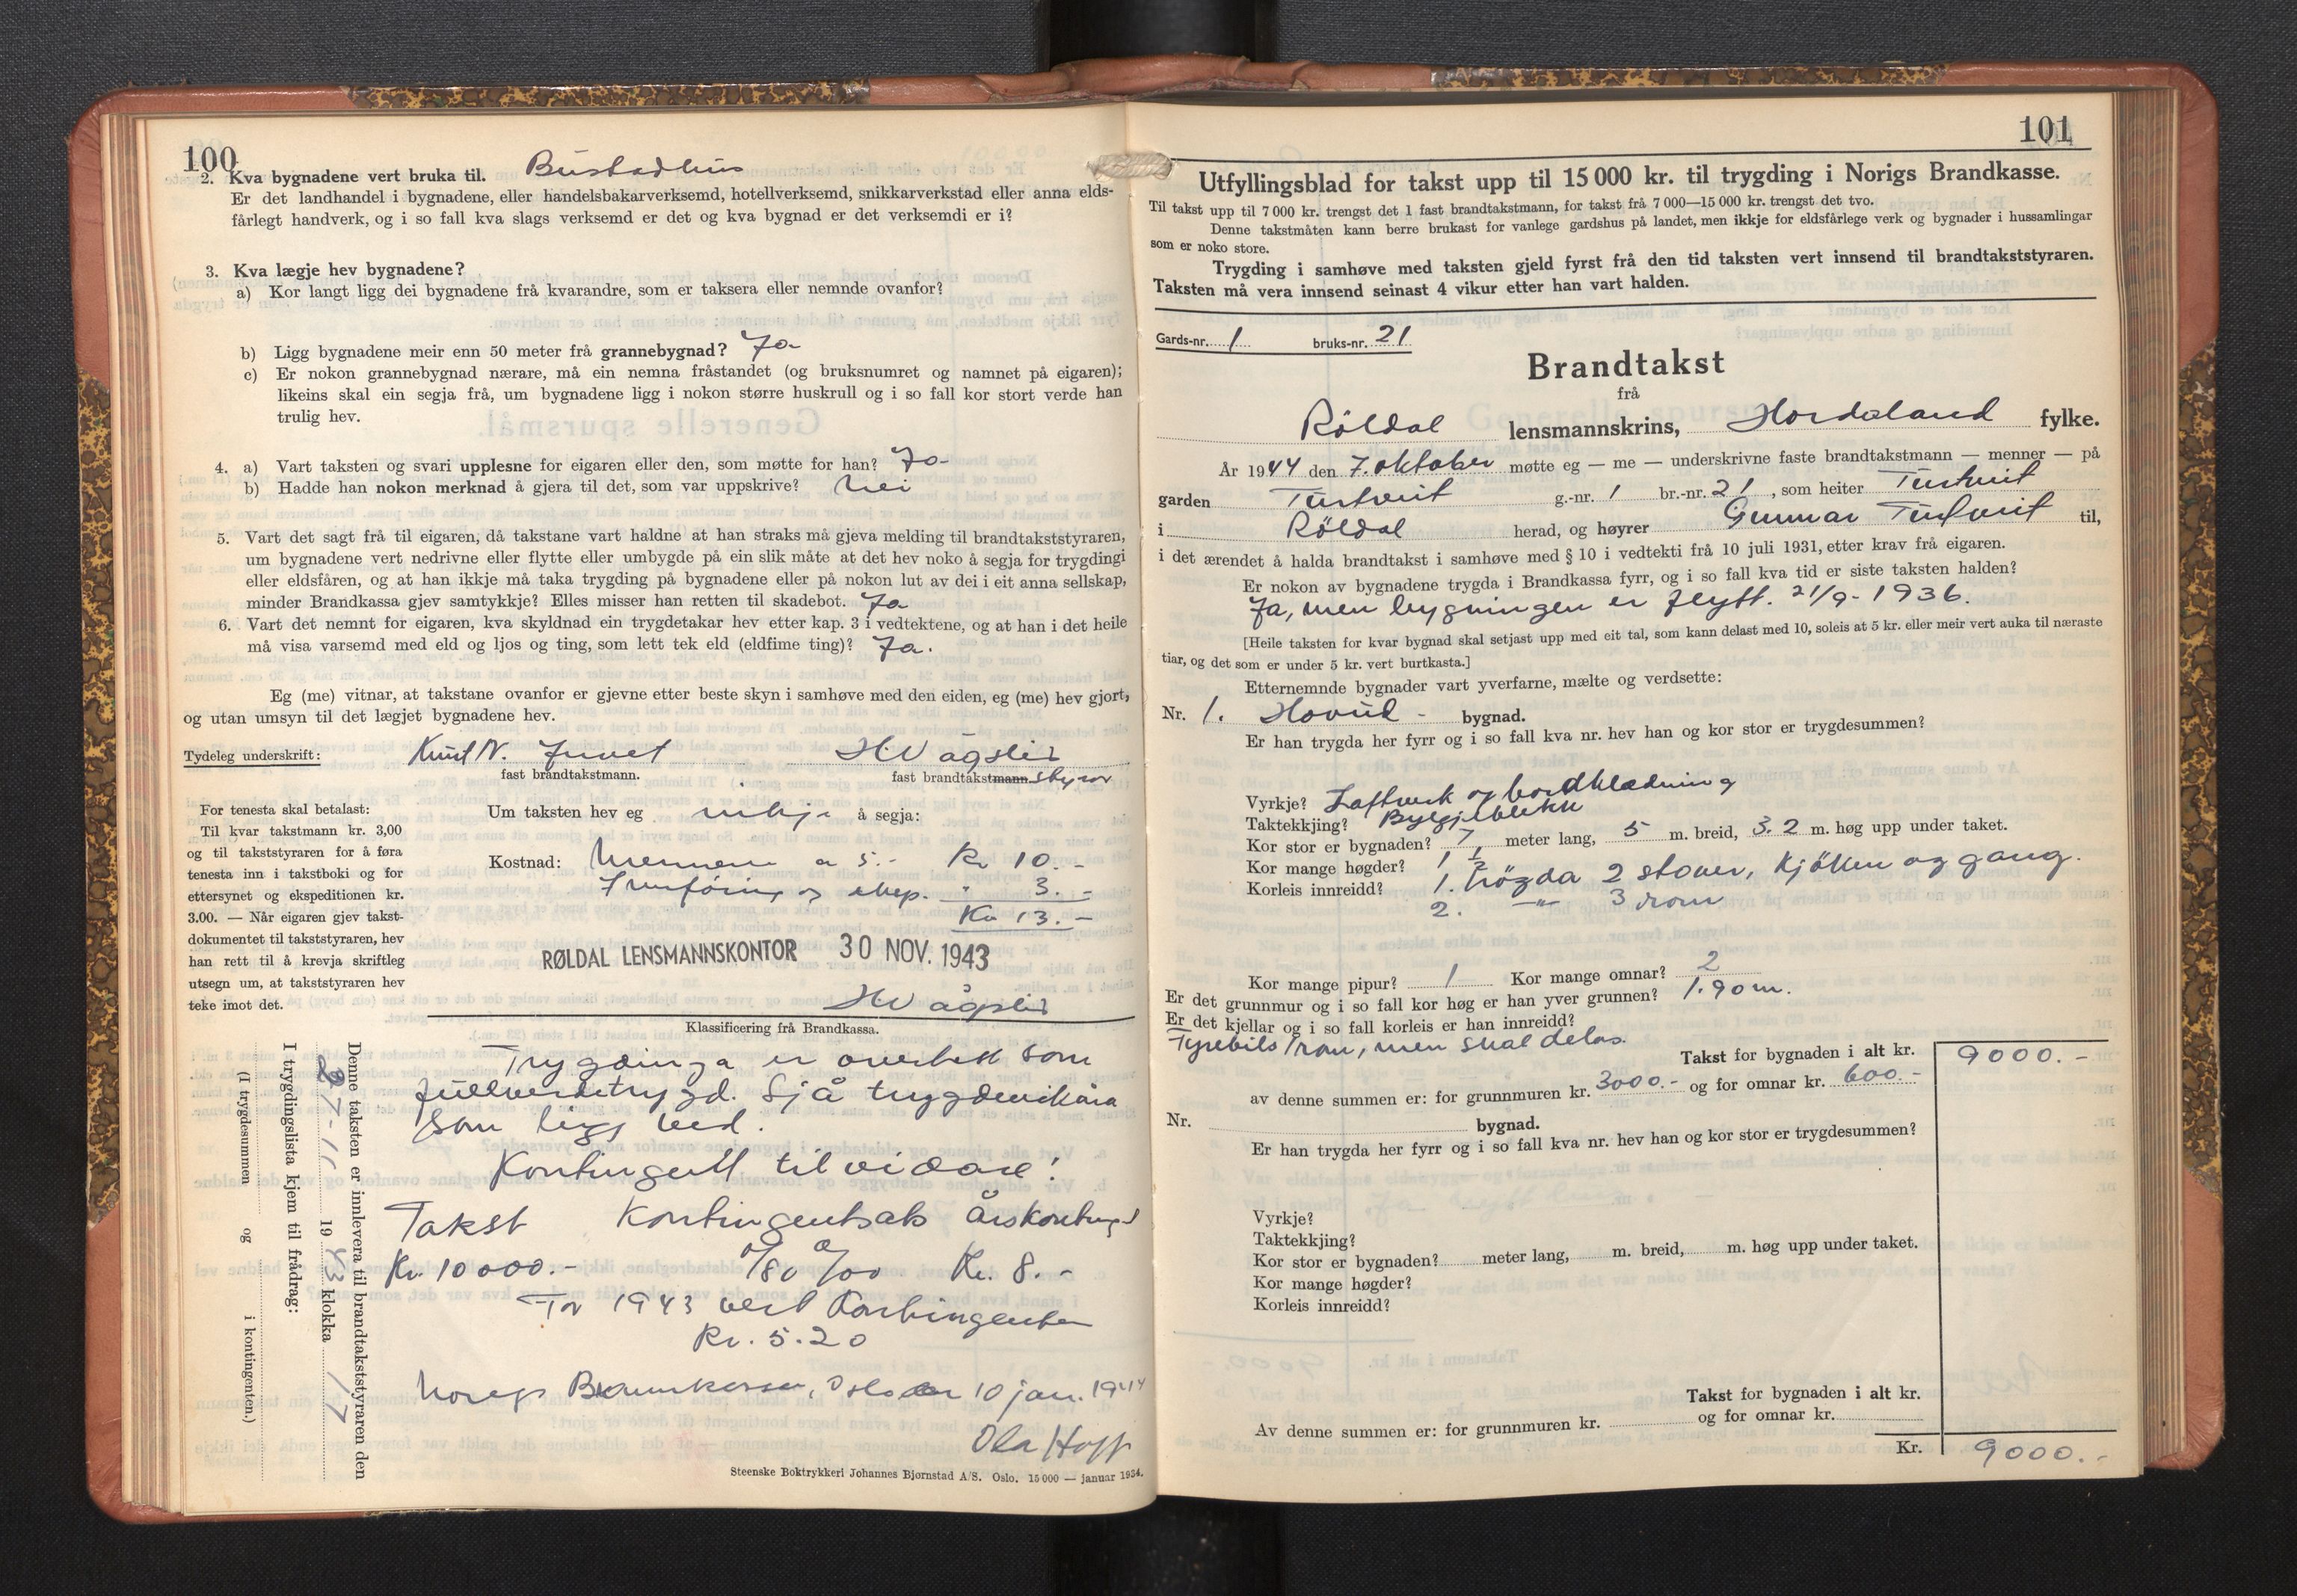 100
2. Kva bygnadene vert bruka til. Bustadhus
Er det landhandel i bygnadene, eller handelsbakarverksemd, hotellverksemd, snikkarverkstad eller anna elds-
fårlegt handverk, og i so fall kva slags verksemd er det og kva bygnad er det verksemdi er i?
3. Kva lægje hev bygnadene?
a) Kor langt ligg dei bygnadene frå kvarandre, som er taksera eller nemnde ovanfor?
b) Ligg bygnadene meir enn 50 meter frå grannebygnad? Ja
c) Er nokon grannebygnad nærare, må ein nemna fråstandet (og bruksnumret og namnet på eigaren);
likeins skal ein segja frå, um bygnadene ligg i nokon større huskrull og i so fall kor stort verde han
trulig hev.
4. a) Vart taksten og svari upplesne for eigaren eller den, som møtte for han? Ja
b) Hadde han nokon merknad å gjera til det, som var uppskrive? Nei
5. Vart det sagt frå til eigaren, då takstane vart haldne at han straks må gjeva melding til brandtakststyraren,
um bygnadene vert nedrivne eller flytte eller umbygde på ein slik måte at det hev noko å segja for trygdingi
eller eldsfåren, og at han ikkje må taka trygding på bygnadene eller på nokon lut av dei i eit anna sellskap,
minder Brandkassa gjev samtykkje? Elles misser han retten til skadebot. Ja
6. Vart det nemnt for eigaren, kva skyldnad ein trygdetakar hev etter kap. 3 i vedtektene, og at han i det heile
må visa varsemd med eld og ljos og ting, som lett tek eld (eldfime ting)? Ja.
Eg (me) vitnar, at takstane ovanfor er gjevne etter beste skyn i samhøve med den eiden, eg (me) hev gjort,
og utan umsyn til det lægjet bygnadene hev.
Tydeleg underskrift: Knut N. Juvet H Vågslid
fast brandtakstmann. fast brandtakstmann styrar
For tenesta skal betalast:
Til kvar takstmann kr. 3,00
og til takststyraren for å føra
tenesta inn i takstboki og for
ettersynet og ekspeditionen kr.
3.00. — Når eigaren gjev takst-
dokumentet til takststyraren, hev
han rett til å krevja skriftleg
utsegn um, at takststyraren hev
teke imot det.
Um taksten hev eg inkje å segja:
Kostnad: Mennene a 5.- Kr 10.-
Innföring og eksp. " 3.-
Kr 13.-
RØLDAL LENSMANNSKONTOR 30 NOV. 1943
H Vågslid
Klassificering frå Brandkassa.
Trygdinga er overteke som
fullverdetrygd. Sjå trygdevilkåra
som ligg ved.
Kontingent til vidare:
Takst Kontingentsats Årskontingent
Kr. 10000.- 0/80 o/oo Kr. 8.-
For 1943 vert Kontingenten
Kr. 5.20
Noregs Brannkasse, Oslo den 10 jan. 1944
Ola Hoff
Denne taksten er innlevera til brandtakststyraren den
27-11 1943 klokka 17
I trygdingslista kjem til frådrag:
(I trygdesummen og i kontingenten.)
Steenske Boktrykkeri Johannes Bjørnstad A/S. Oslo. 15 000 — januar 1934.
101
Utfyllingsblad for takst upp til 15 000 kr. til trygding i Norigs Brandkasse.
Til takst upp til 7 000 kr. trengst det 1 fast brandtakstmann, for takst frå 7 000—15 000 kr. trengst det tvo.
Denne takstmåten kann berre brukast for vanlege gardshus på landet, men ikkje for eldsfårlege verk og bygnader i hussamlingar
som er noko store.
Trygding i samhøve med taksten gjeld fyrst frå den tid taksten vert innsend til brandtakststyraren.
Taksten må vera innsend seinast 4 vikur etter han vart halden.
Gards-nr. 1 bruks-nr. 21
Brandtakst
frå
Röldal lensmannskrins, Hordaland fylke.
År 1944 den 7. oktober møtte eg — me — underskrivne faste brandtakstmann — menner — på
garden Tustveit g.-nr. 1 br.-nr. 21, som heiter Tustveit
i Röldal herad, og høyrer Gunnar Tustveit til,
i det ærendet å halda brandtakst i samhøve med § 10 i vedtekti frå 10 juli 1931, etter krav frå eigaren.
Er nokon av bygnadene trygda i Brandkassa fyrr, og i so fall kva tid er siste taksten halden?
Ja, men bygningen er flytt. 21/9- 1936.
[Heile taksten for kvar bygnad skal setjast upp med eit tal, som kann delast med 10, soleis at 5 kr. eller meir vert auka til næraste
tiar, og det som er under 5 kr. vert burtkasta.]
Etternemnde bygnader vart yverfarne, mælte og verdsette:
Nr. 1. Hovud - bygnad.
Er han trygda her fyrr og i so fall kva nr. hev han og kor stor er trygdesummen?
Vyrkje? Laftverk og bordklædning
Taktekkjing? Bylgjeblekk
Kor stor er bygnaden? 7 meter lang, 5 m. breid, 3.2 m. høg upp under taket.
Kor mange høgder? 1 1/2
Korleis innreidd? 1. högda 2 stover, kjöken og gang.
2. —"— 3 rom
Kor mange pipur? 1 Kor mange omnar? 2
Er det grunnmur og i so fall kor høg er han yver grunnen? 1.90 m.
Er det kjellar og i so fall korleis er han innreidd?
Fyrebils 1 rom, men skal delas.
Takst for bygnaden i alt kr. 9000.-
av denne summen er: for grunnmuren kr. 3000.- og for omnar kr. 600.-
Nr. bygnad.
Er han trygda her fyrr og i so fall kva nr. hev han og kor stor er trygdesummen?
Vyrkje?
Taktekkjing?
Kor stor er bygnaden? meter lang, m. breid, m. høg upp under taket.
Kor mange høgder?
Korleis innreidd?
Takst for bygnaden i alt kr.
Av denne summen er: for grunnmuren kr. og for omnar kr.
Kr. 9000.-